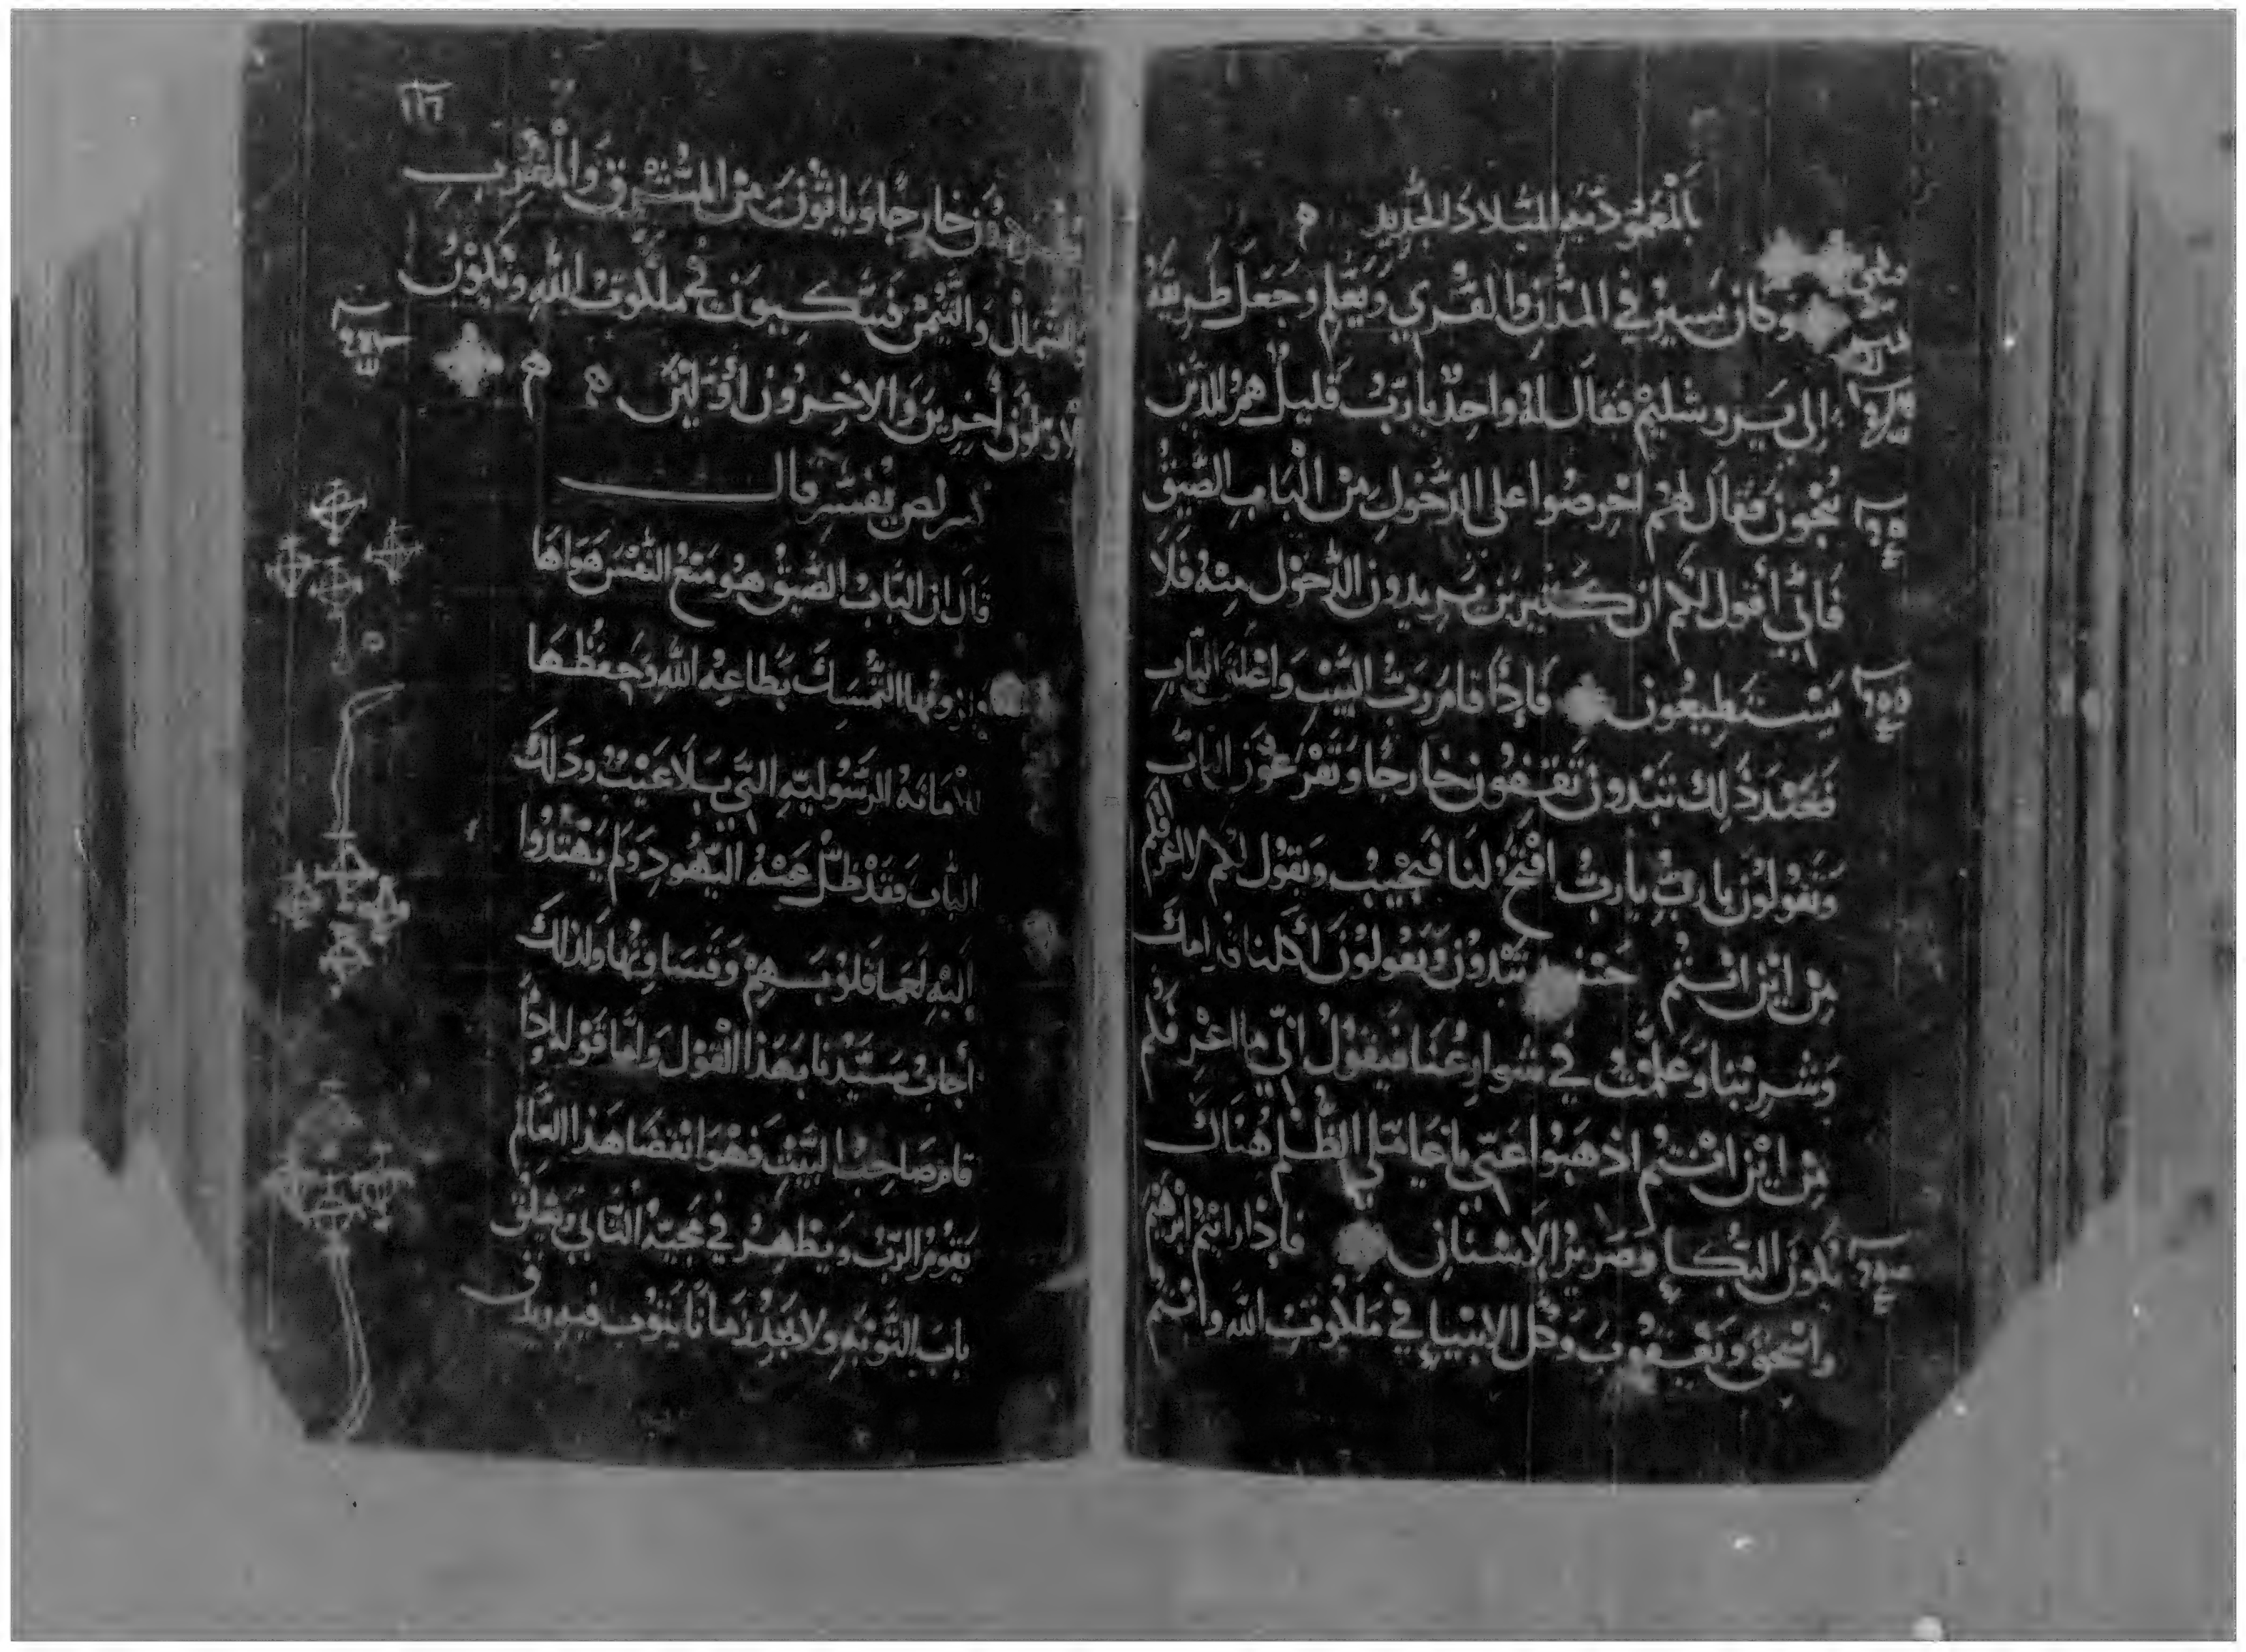 بالمعمودية الميلاد الجديد
وكان يسير في المدن والقري ويعلم وجعل طريقه
إلى يروشليم فقال له واحد يا رب قليل هم الذين
ينجون فقال لهم احرصوا على الدخول من الباب الضيق
فاني أقول لكم ان كثيرين يريدون الدخول منه فلا
يستطيعون فاذا قام رب البيت واغلق الباب
فعند ذلك تبدون تقفون خارجا وتقرعون الباب
وتقولون يا رب يا رب افتح لنا فيجيب ويقول لكم لا اعرفكم
من اين انتم حينئذ تبدون وتقولون اكلنا قدامك
وشربنا وعلمت في شوارعنا فيقول اني ما اعرفكم
من اين انتم اذهبوا عني يا عاملي الظلم هناك
يكون البكا وصرير الاسنان فاذا رايتم ابرهيم
واسحق ويعقوب وكل الانبيا في ملكوت الله وانتم
١١٦
خارجا وياتون من المشرق والمغرب
والشمال واليمن فيتكيون في ملكوت الله ويكون
الاولون أخرين والاخرون أولين
يفسر قال
قال ان الباب الضيق هو منع النفس هواها
التمسك بطاعة الله وحفظها
للامانه الرسوليه التي بلا عيب وذلك
الباب فقد ظل عنه اليهود ولم يهتدوا
اليه لعما قلوبهم وقساوتها ولذلك
أجاب سيدنا بهذا القول وأما قوله اذا
قام صاحب البيت فهو انقضا هذا العالم
يقوم الرب ويظهر في مجيه الثاني ويغلق
باب التوبه ولا يجد زمانا يتوب فيه